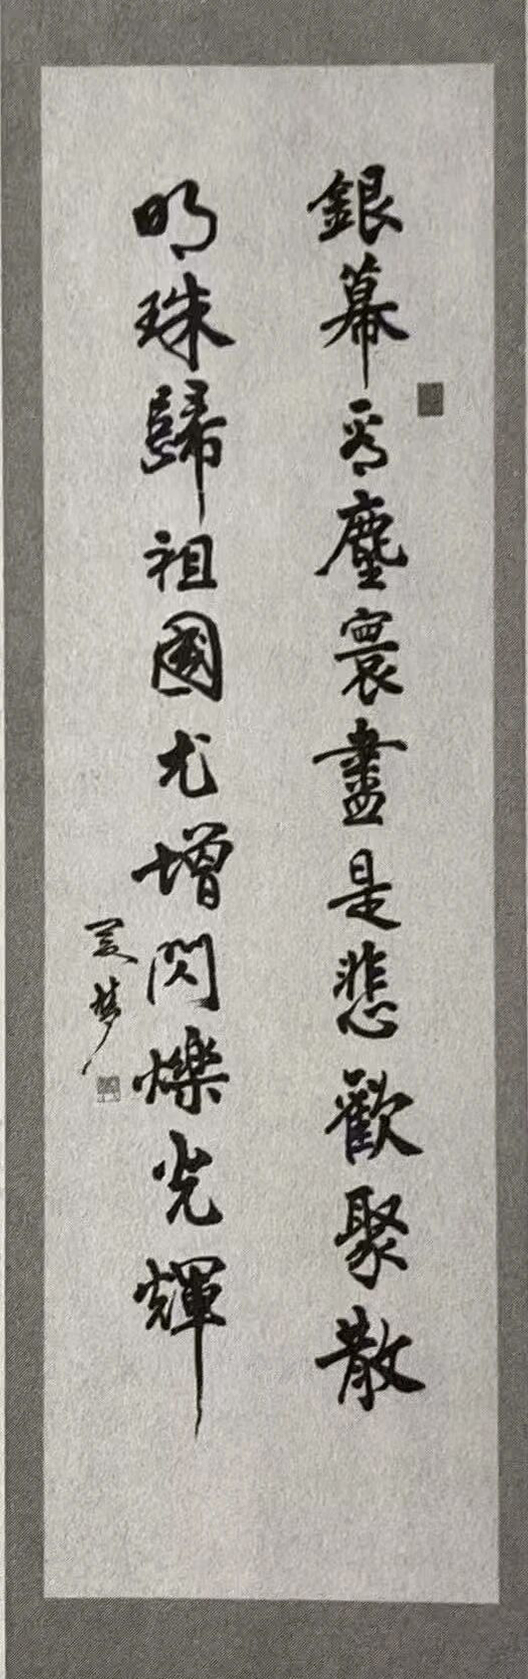 銀幕竟塵寰盡是悲歡聚散
明珠歸祖國尤增閃爍光輝
夢